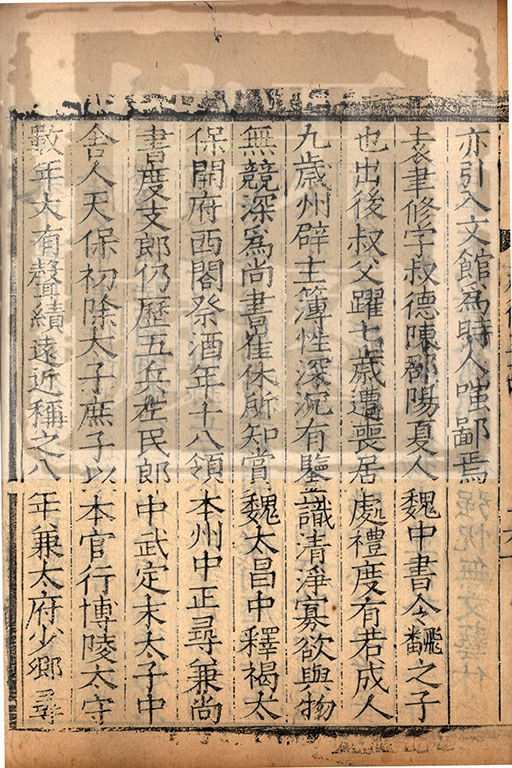 亦引入文館為時人嗤鄙焉
袁聿修字叔德陳郡陽夏人魏中書令飜之子
也出後叔父躍七歲遭喪居處禮度有若成人
九歲州辟主簿性深沉有鑒識清淨寡欲與物
無競深為尚書崔休所知賞魏太昌中釋褐太
保開府西閤祭酒年十八領本州中正尋兼尚
書度支郎仍歷五兵左民郎中武定末太子中
舍人天保初除太子庶子以本官行博陵太守
數年大有聲績遠近稱之八年兼太府少卿尋